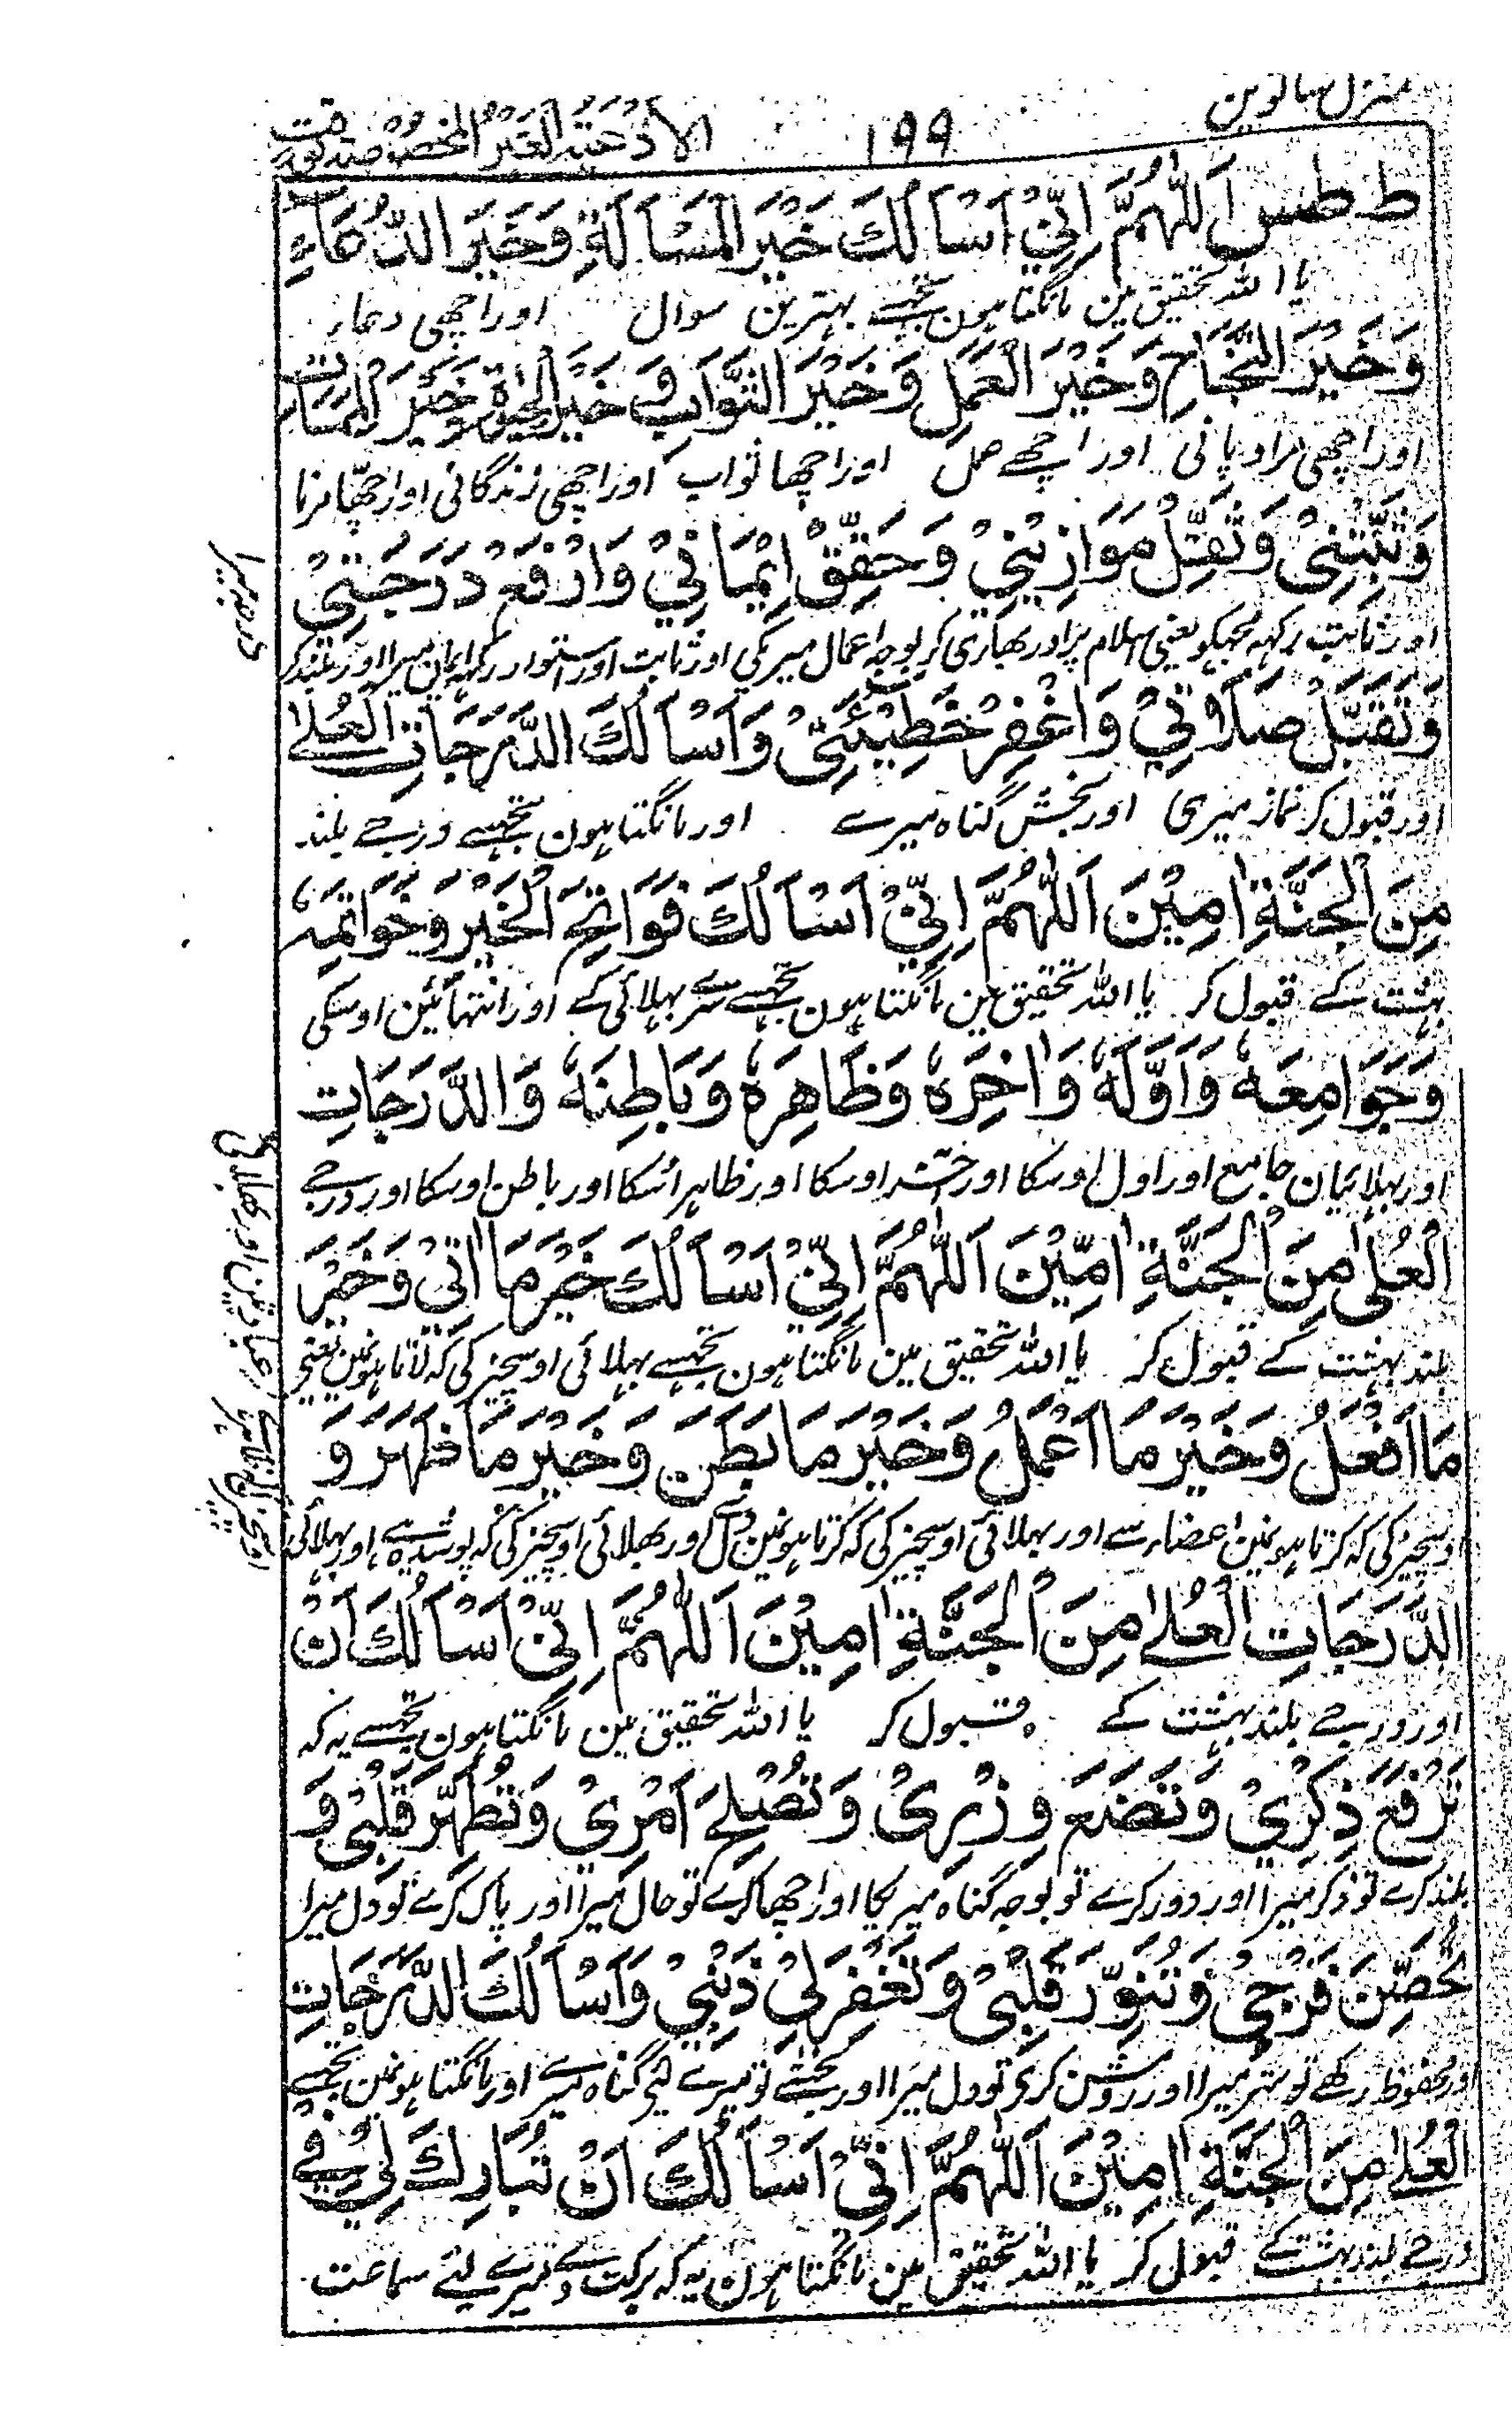 منزل ساتوین ۱۹۹ الادعیۃ الغیر المخصوصۃ بوقت
ط طس اَللّٰهُمَّ اِنِّيْ اَسْاَلُكَ خَيْرَ الْمَسْاَلَةِ وَخَيْرَ الدُّعَاءِ
یا اللہ تحقیق مین مانگتا ہون تجھسے بہترین سوال اور اچھی دعاء
وَخَيْرَ النَّجَاحِ وَخَيْرَ الْعَمَلِ وَخَيْرَ الثَّوَابِ وَ خَيْرَ الْحَيٰوةِ وَخَيْرَ الْمَمَاتِ
اور اچھی مراد پانی اور اچھے عمل اور اچھا ثواب اور اچھی زندگانی اور اچھّا مرنا
وَثَبِّتْنِيْ وَثَقِّلْ مَوَازِيْنِيْ وَحَقِّقْ اِيْمَانِيْ وَارْفَعْ دَرَجَتِيْ
اور ثابت رکھ مجھکو یعنی اسلام پر اور بھاری کر بوجہ اعمال میریکی اور ثابت اور استوار رکھ ایمان میرا اور بلند کر
درجہ میرا
وَتَقَبَّلْ صَلَاتِيْ وَاغْفِرْ خَطِيْئَتِيْ وَاَسْاَلُكَ الدَّرَجَاتِ الْعُلٰے
اور قبول کر نماز میری اور بخش گناہ میرے اور مانگتا ہون تجھسے درجے بلند
مِنَ الْجَنَّةِ اٰمِيْنَ اَللّٰهُمَّ اِنِّيْ اَسْاَلُكَ فَوَاتِحَ الْخَيْرِ وَخَوَاتِمَهٗ
بہشت کے قبول کر یا اللہ تحقیق مین مانگتا ہون تجھسے سرے بھلائی کے اور انتہائین اوسکی
وَجَوَامِعَهٗ وَاَوَّلَهٗ وَاٰخِرَهٗ وَظَاهِرَهٗ وَبَاطِنَهٗ وَالدَّرَجَاتِ
اور بھلائیان جامع اور اول اوسکا اور اوسکا اور ظاہر اُسکا اور باطن اوسکا اور درجے
الْعُلٰى مِنَ الْجَنَّةِ اٰمِيْنَ اَللّٰهُمَّ اِنِّيْ اَسْاَلُكَ خَيْرَ مَا اٰتِيْ وَخَيْرَ
بلند بہشت کے قبول کر یا اللہ تحقیق مین مانگتا ہون تجھسے بھلائی اوسچیز کی کہ لاتا ہونمین یعنی
مَا اَفْعَلُ وَخَيْرَ مَا اَعْمَلُ وَخَيْرَ مَا بَطَنَ وَخَيْرَ مَا ظَهَرَ وَ
اوسچیز کی کہ کرتا ہونمین اعضاء سے اور بھلائی اوسچیز کی کہ کرتا ہونمین دل سے اور بھلائی اوسچیز کی کہ پوشیدہ ہے اور بھلائی
الدَّرَجَاتِ الْعُلٰے مِنَ الْجَنَّةِ اٰمِيْنَ اَللّٰهُمَّ اِنِّيْ اَسْاَلُكَ اَنْ
اور درجے بلند بہشت کے قبول کر یا اللہ تحقیق مین مانگتا ہون تجھسے یہ کہ
تَرْفَعَ ذِكْرِيْ وَتَضَعَ وِزْرِيْ وَتُصْلِحَ اَمْرِيْ وَتُطَهِّرَ قَلْبِيْ وَ
بلند کرے تو ذکر میرا اور دور کرے تو بوجہ گناہ میریکا اور اچھا کرے تو حال میرا اور پاک کرے تو دل میرا
تُحَصِّنَ فَرْجِيْ وَتُنَوِّرَ قَلْبِيْ وَتَغْفِرَ لِيْ ذَنْبِيْ وَاَسْاَلُكَ الدَّرَجَاتِ
اور محفوظ رکھے تو ستر میرا اور روشن کرے تو دل میرا اور بخشے تو میرے لئے گناہ میرے اور مانگتا ہونمین تجھسے
الْعُلٰے مِنَ الْجَنَّةِ اٰمِيْنَ اَللّٰهُمَّ اِنِّيْ اَسْاَلُكَ اَنْ تُبَارِكَ لِيْ فِيْ
درجے بلند بہشت کے قبول کر یا اللہ تحقیق مین مانگتا ہون یہ کہ برکت دے میرے لئے سماعت